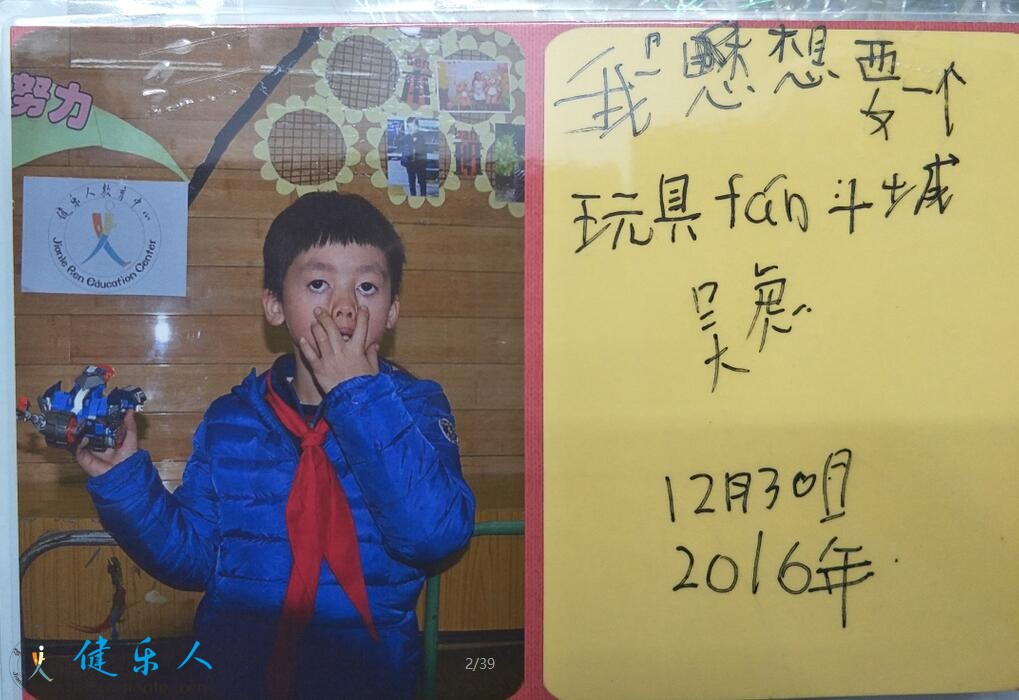 努力
健乐人教育中心
Jianle Ren Education Center
我想想要一个
玩具fan斗城
吴
12月30日
2016年
健乐人
2/39